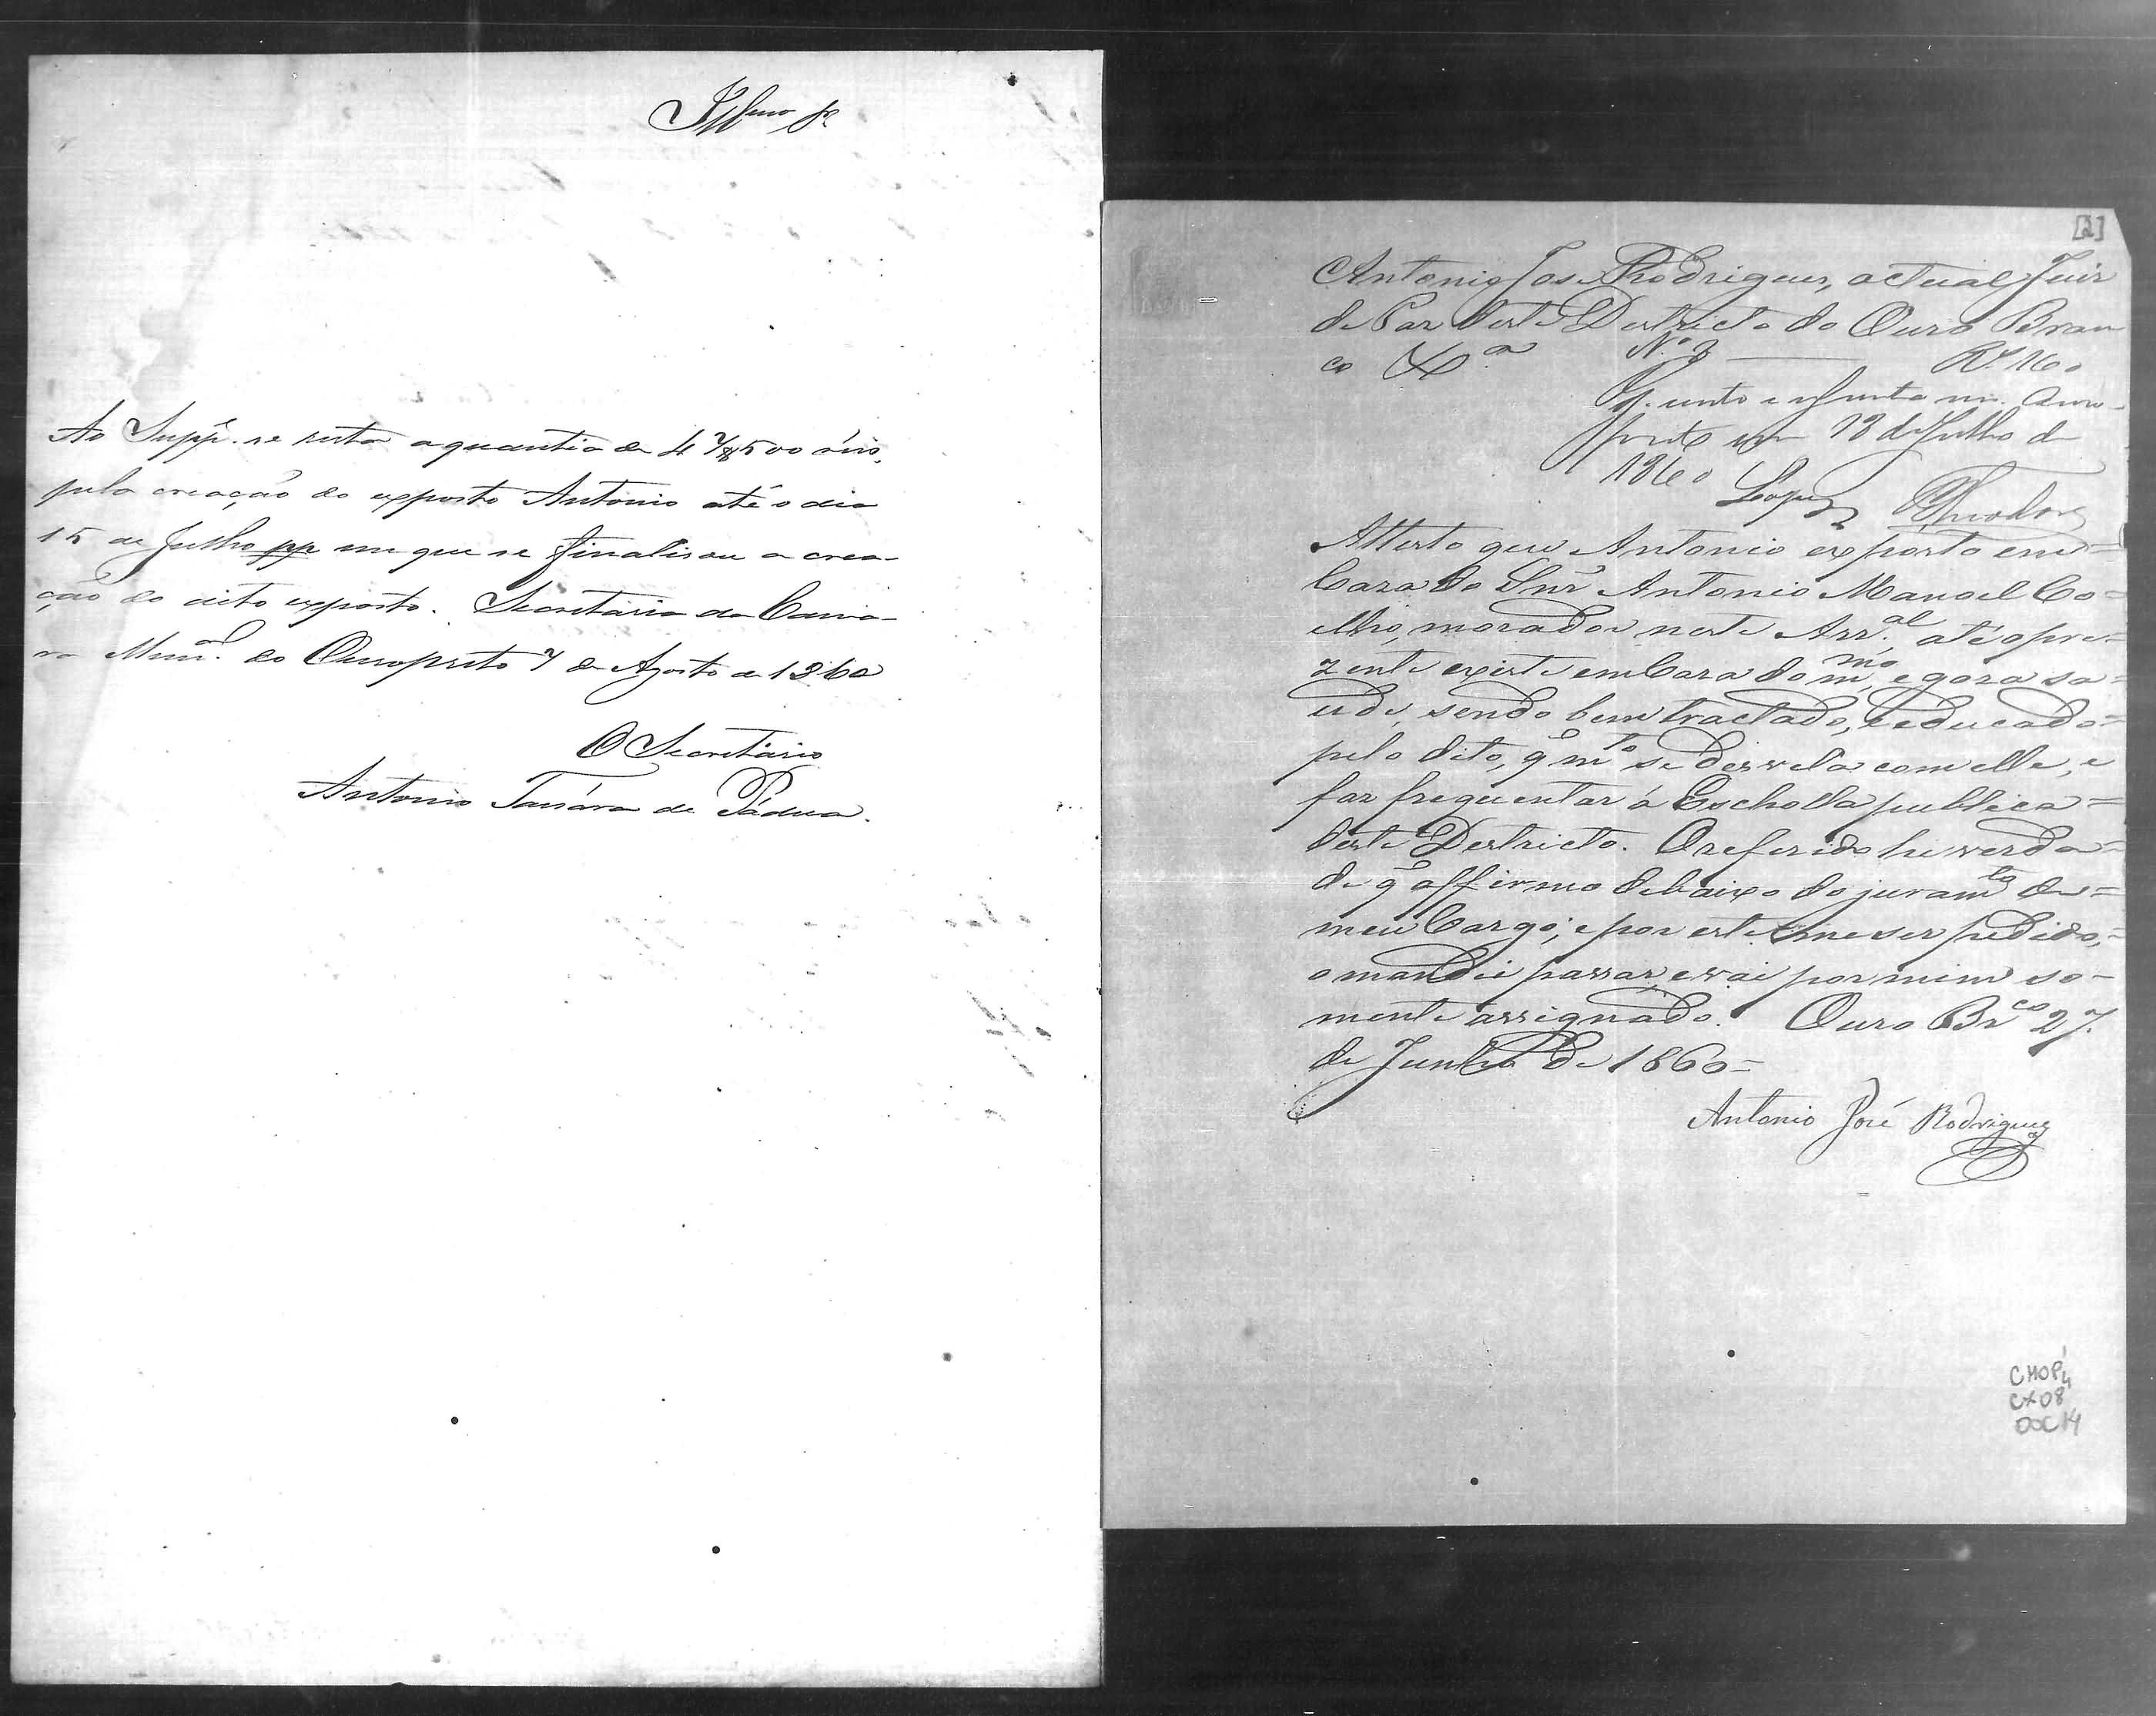 Illmo Sr
Ao Suppe. se resta a quantia de 47$500 réis,
pela creação do exposto Antonio até o dia
15 de Julho pp em que se finalisou a crea-
ção do dito exposto. Secretaria da Cama-
ra Munal. do Ouropreto 7 de Agosto de 1860
O Secretário
Antonio de Pádua.
[2]
Antonio Jose Rodrigues, actual Juis
de Paz deste Destricto do Ouro Bran
co Xa.
No. 3 Rs. 160
Pg. cento e secenta rs. Ouro-
preto em 13 de Julho de
1860
Lopes Theodoro
Attesto que Antonio exposto em =
Caza do Snr Antonio Manoel Co =
elho, morador neste Arral. até o pre =
zente existe em Caza do mmo, e goza sa =
ude, sendo bem tractado, e educado =
pelo dito, q mto se desvela com elle, e
faz frequentar á Escholla publica =
deste Destricto. O referido he verda =
de q affirmo debaixo do juramto de =
meu Cargo; e por este me ser pedido, =
o mandei passar, e vai por mim so =
mente assignado. Ouro Brco 27.
de Junho de 1860 =
Antonio José Rodrigues
CMOP
CX 08
DOC 14